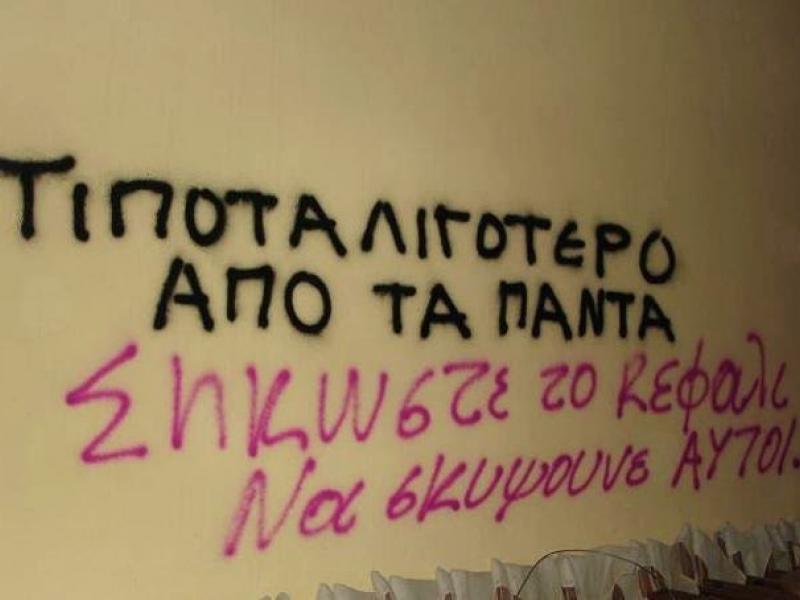 ΤΙΠΟΤΑ ΛΙΓΟΤΕΡΟ
ΑΠΟ ΤΑ ΠΑΝΤΑ
Σηκωστε το κεφαλι
Να σκυψουνε ΑΥΤΟΙ.